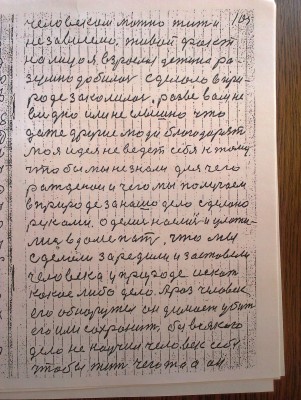 человеком можно жить и 105
независимо, живой факт
на лицо я взрослы детина ра-
зумно добилася сделало в при-
роде закомилася, разве вам не
видно или не слышно что
даже другие люди благодарят
моя идея не ведет себя к тому
что бы мы не знали для чего
рождены и чего мы получаем
в природе за нашо дело сделано
руками. Одели наели и
лиш в дом спать, что мы
сделали зародили и заставели
человека у природе искать
какое либо дело. А раз человек
его обнаружил он думает убить
его или сохранить бы всякого
дело не научил человек себя
чтобы жить чего то а он